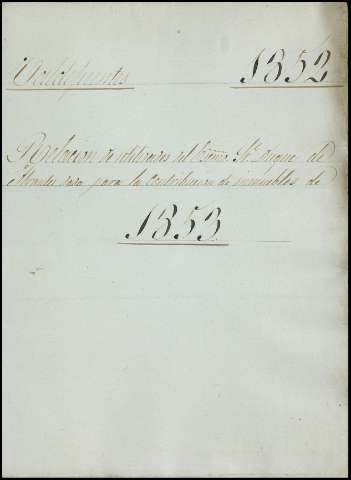 Valdefuentes 1852
Relacion de utilidades del Exmo. Sr. Duque de
Abrantes dada para la Contribucion de inmuebles de
1853.